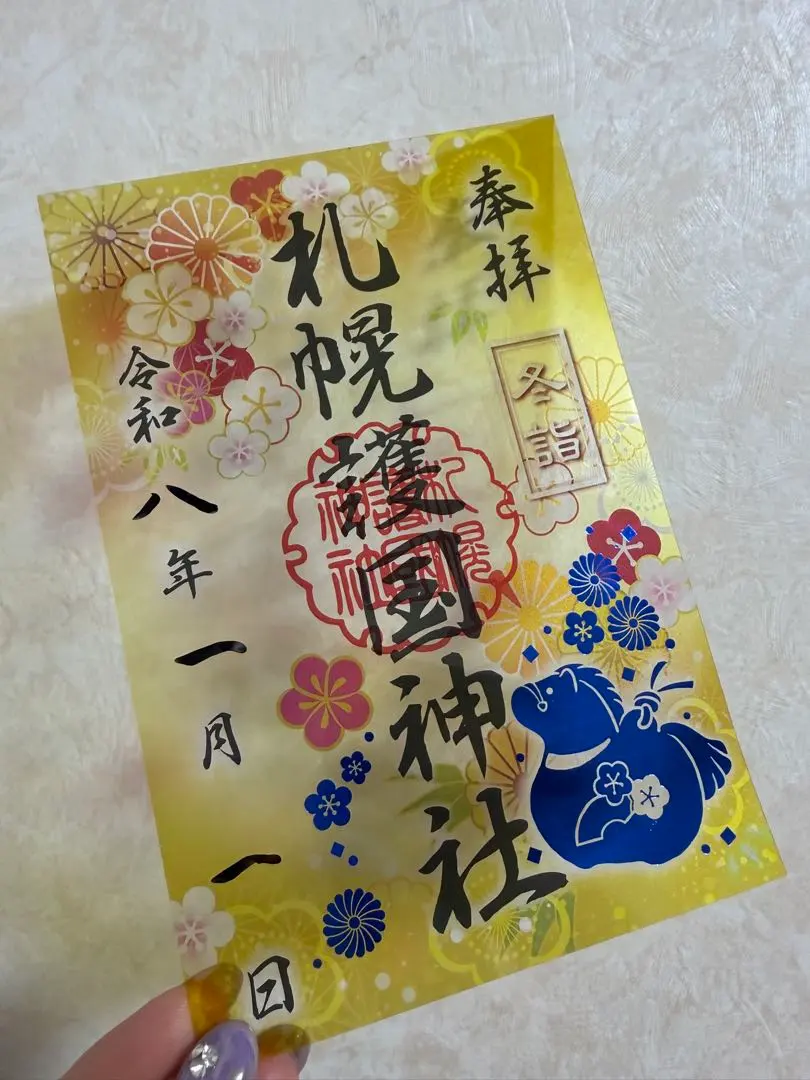 奉拝
冬詣
札幌護国神社
札幌
護国
神社
令和八年一月一日